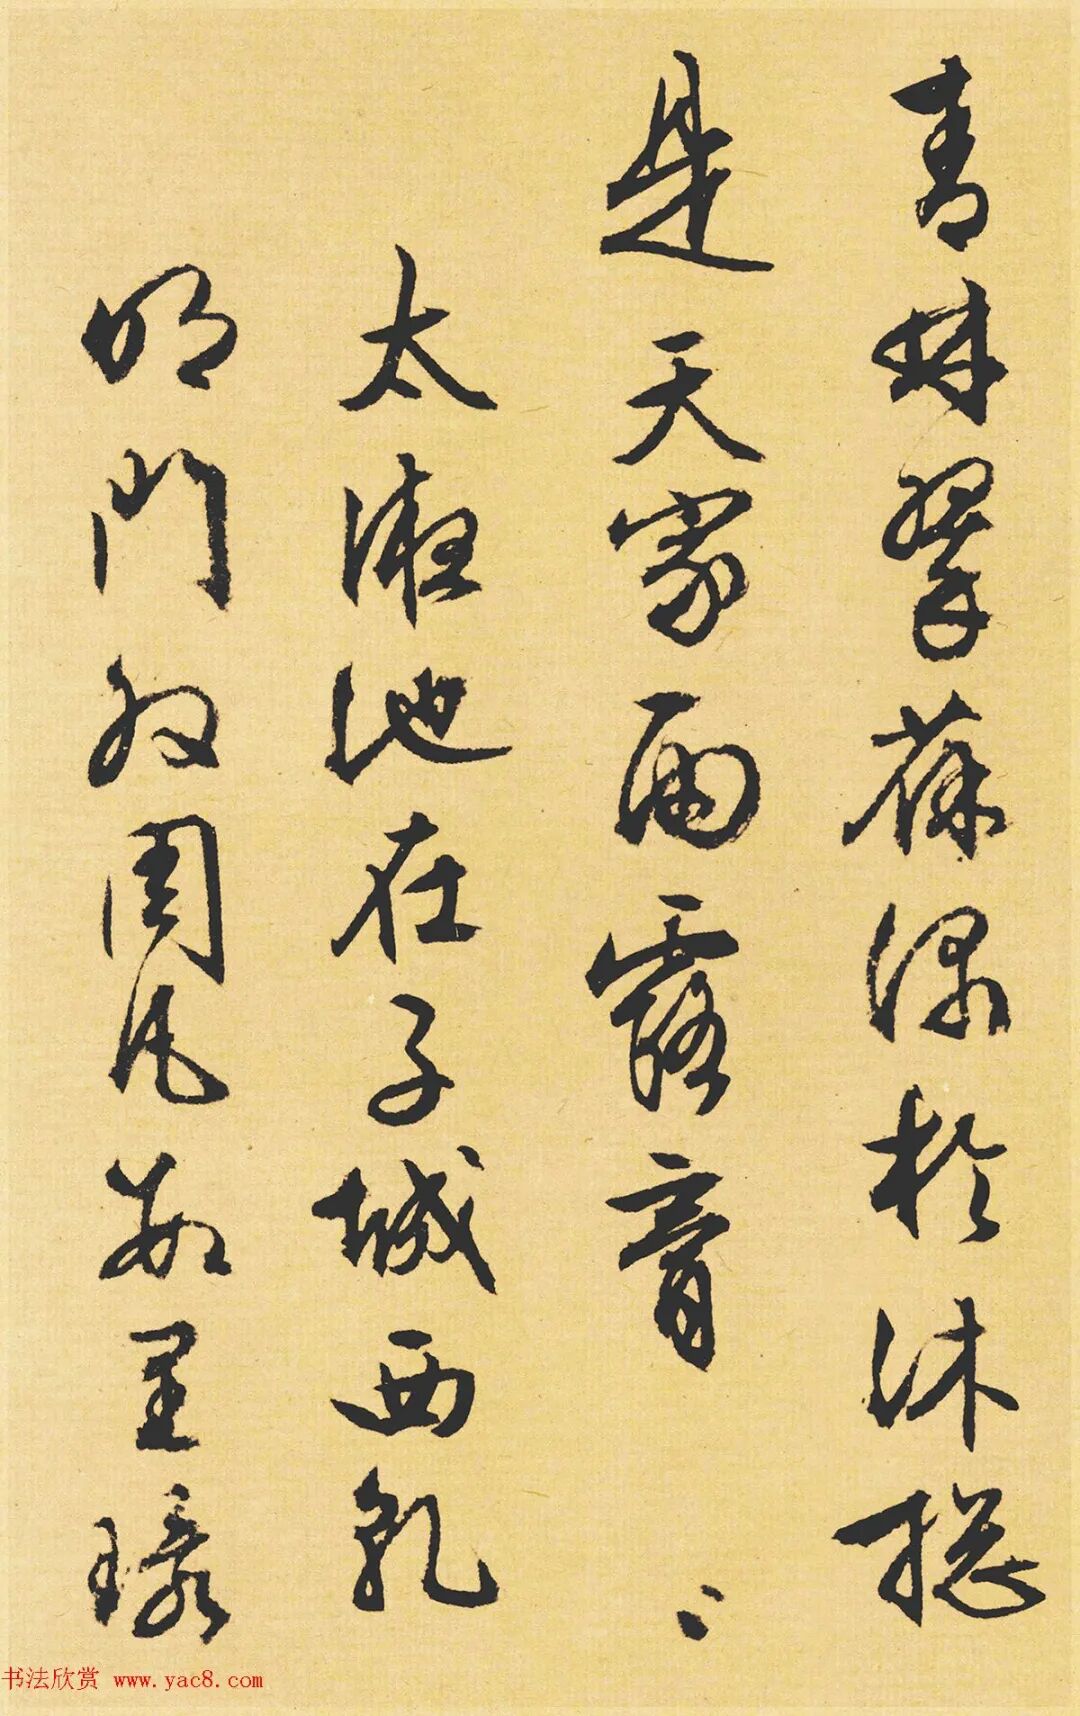 青林翠葆深於沐總
是天家雨露膏
太液池在子城西乾
明門外周凡數里環
书法欣赏 www.yac8.com